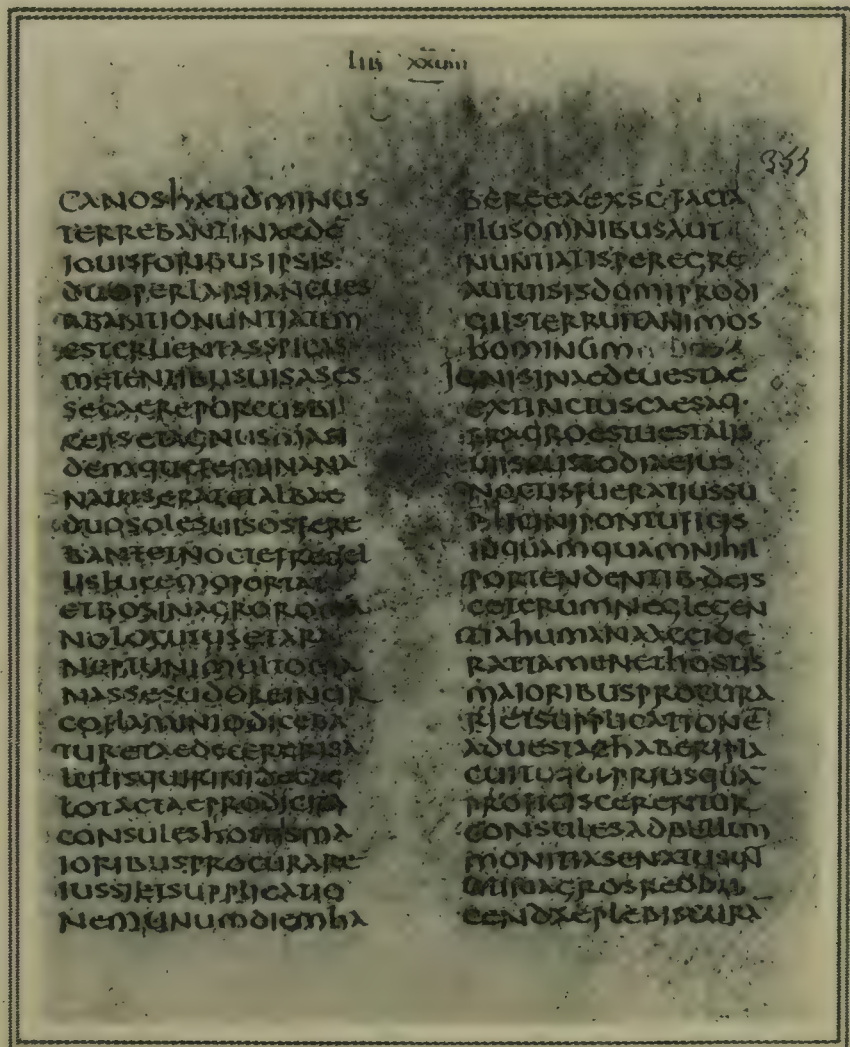 LIB XXVIII
355
CANOSHAUDMINUS
TERREBANTINAEDĒ
IOUISFORIBUSIPSIS
DUOPERLAPSIANGUES
ABANTIONUNTIATUM
ESTCRUENTASSPICAS
METENTIBUSUISASES
SECAEREPORCUSBI
CEPSETAGNUSMASI
DEMQUEFEMINANA
NATUSERATETALBAE
DUOSOLESUISOSFERE
BANTEINOCTEFREGEL
LISLUCEMOPORTAT
ETBOSINAGROROMA
NOLOCUTUSETARA
NEPTUNIMULTOMA
NASSESUDOREINCIR
COFLAMINIODICEBA
TURETAEDSCERERISSA
LUTISQUIRINIDECAE
LOTACTAEPRODIGIA
CONSULESHOSTISMA
IORIBUSPROCURARE
IUSSIETSUPPLICATIO
NEMUNUMDIEMHA
BEREEAEXS̄C̄FACTA
PLUSOMNIBUSAUT
NUNTIATISPEREGRE
AUTUISISDOMIPRODI
GIISTERRUITANIMOS
HOMINUM
IGNISINAEDEUESTAE
EXTINCTUSCAESAQ·
FLAGROESTUESTALIS
UIISCUSTODIAEIUS
NOCTISFUERATIUSSU
PLICINIPONTIFICIS
IDQUAMQUAMNIHIL
PORTENDENTIB·DEIS
CETERUMNEGLEGEN
TIAHUMANAACCIDE
RATTAMENETHOSTIS
MAIORIBUSPROCURA
RIETSUPPLICATIONĒ
ADUESTAEHABERIPLA
CUITUQUIPRIUSQUĀ
PROFICISCERENTUR
CONSULESADBELLUM
MONITIASENATUSUN̄
UTINAGROSREDDU
CENDAEPLEBISCURA